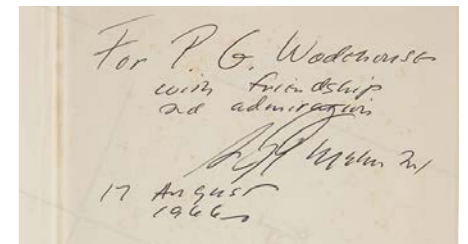 For P. G. Wodehouse
with friendship
and admiration
17 August
1966